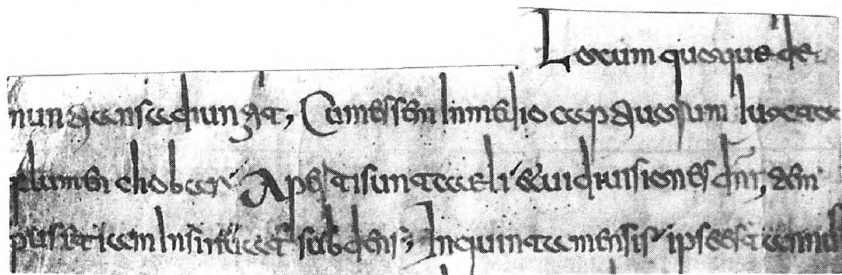 Locum quoque de
nuntians adiungit, Cum essem In medio captiuorum iuxta
flumen chobar Aperti sunt caeli & uidi uisiones dni, tem
pus etiam Insinuat subdens, In quinta mensis ipse est annus